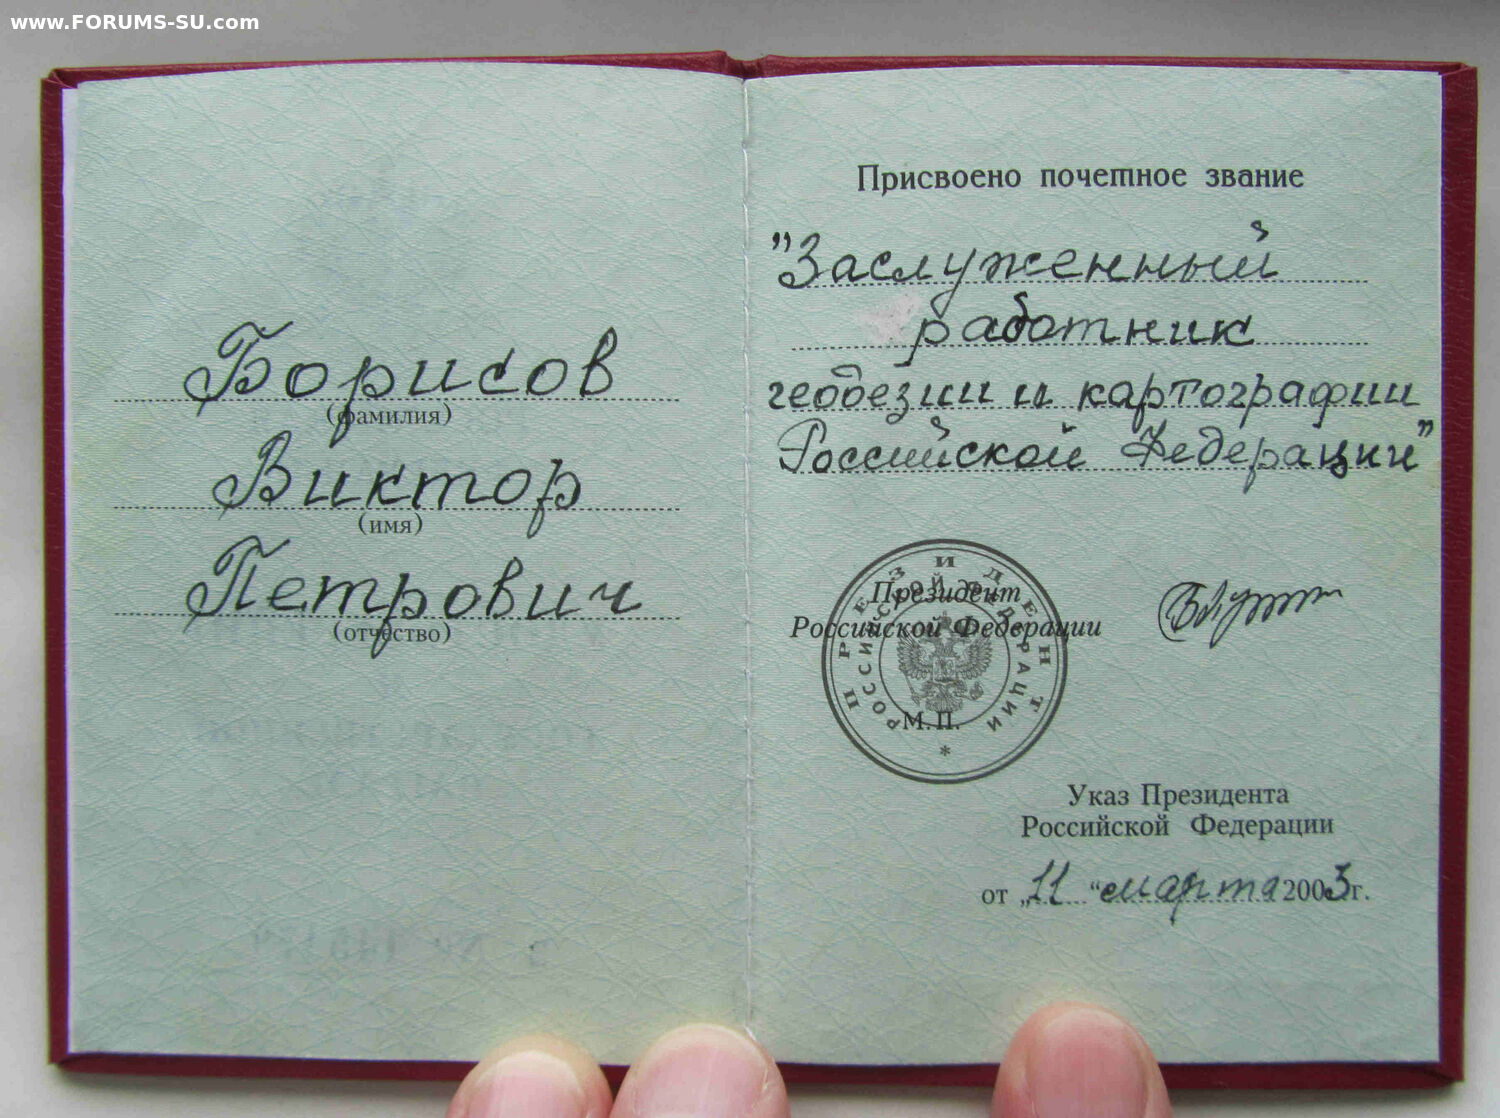 www.FORUMS-SU.com
Борисов
(фамилия)
Виктор
(имя)
Петрович
(отчество)
Присвоено почетное звание
"Заслуженный
работник
геодезии и картографии
Российской Федерации"
Президент
Российской Федерации
ПРЕЗИДЕНТ
РОССИЙСКОЙ ФЕДЕРАЦИИ
М.П.
*
Указ Президента
Российской Федерации
от „11“ марта 2003г.